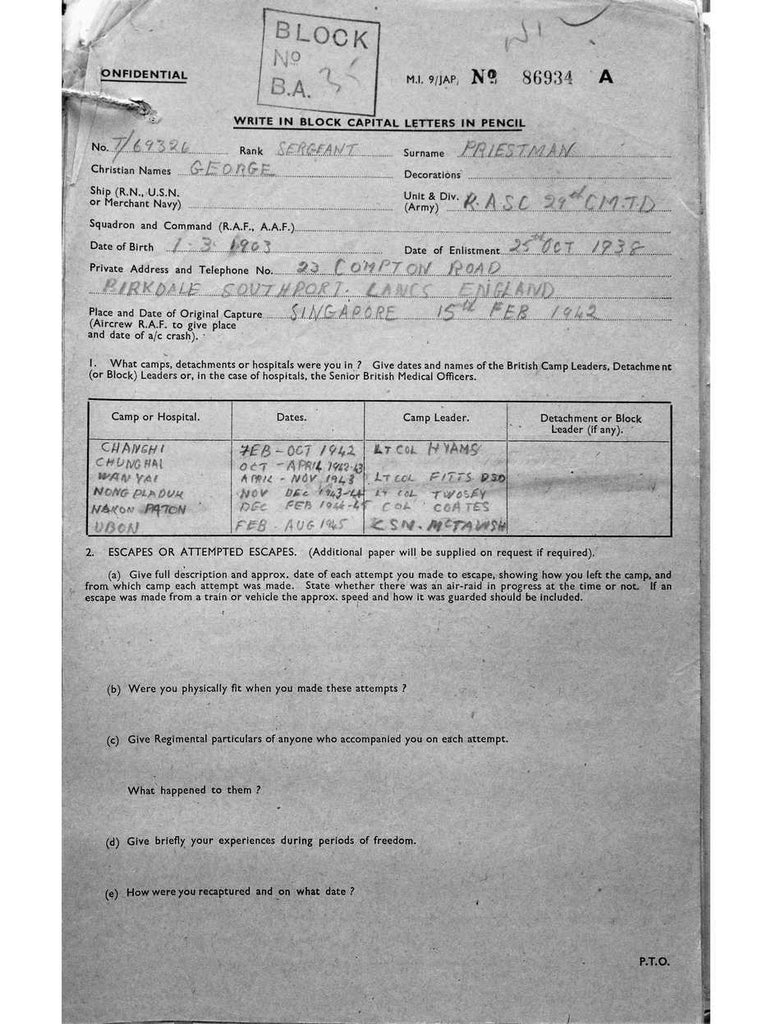 BLOCK
No
B.A. 35
ONFIDENTIAL
M.I. 9/JAP. No 86934 A
WRITE IN BLOCK CAPITAL LETTERS IN PENCIL
No. T/69326 Rank SERGEANT Surname PRIESTMAN
Christian Names GEORGE Decorations
Ship (R.N., U.S.N. or Merchant Navy)
Unit & Div. (Army) R.A.S.C 29th C.M.T.D
Squadron and Command (R.A.F., A.A.F.)
Date of Birth 1.3.1903 Date of Enlistment 25th OCT 1938
Private Address and Telephone No. 23 COMPTON ROAD
BIRKDALE SOUTHPORT. LANCS ENGLAND
Place and Date of Original Capture SINGAPORE 15th FEB 1942
(Aircrew R.A.F. to give place
and date of a/c crash).
1. What camps, detachments or hospitals were you in ? Give dates and names of the British Camp Leaders, Detachment
(or Block) Leaders or, in the case of hospitals, the Senior British Medical Officers.
Camp or Hospital. Dates. Camp Leader. Detachment or Block Leader (if any).
CHANGHI FEB - OCT 1942 LT COL HYAMS
CHUNGHAI OCT - APRIL 1942-43
WANYAI APRIL - NOV 1943 LT COL FITTS DSO
NONG PLADUK NOV DEC 1943-44 LT COL TWOSEY
NAKON PATON DEC FEB 1944-45 COL COATES
UBON FEB - AUG 1945 CSN. McTAVISH
2. ESCAPES OR ATTEMPTED ESCAPES. (Additional paper will be supplied on request if required).
(a) Give full description and approx. date of each attempt you made to escape, showing how you left the camp, and
from which camp each attempt was made. State whether there was an air-raid in progress at the time or not. If an
escape was made from a train or vehicle the approx. speed and how it was guarded should be included.
(b) Were you physically fit when you made these attempts ?
(c) Give Regimental particulars of anyone who accompanied you on each attempt.
What happened to them ?
(d) Give briefly your experiences during periods of freedom.
(e) How were you recaptured and on what date ?
P.T.O.